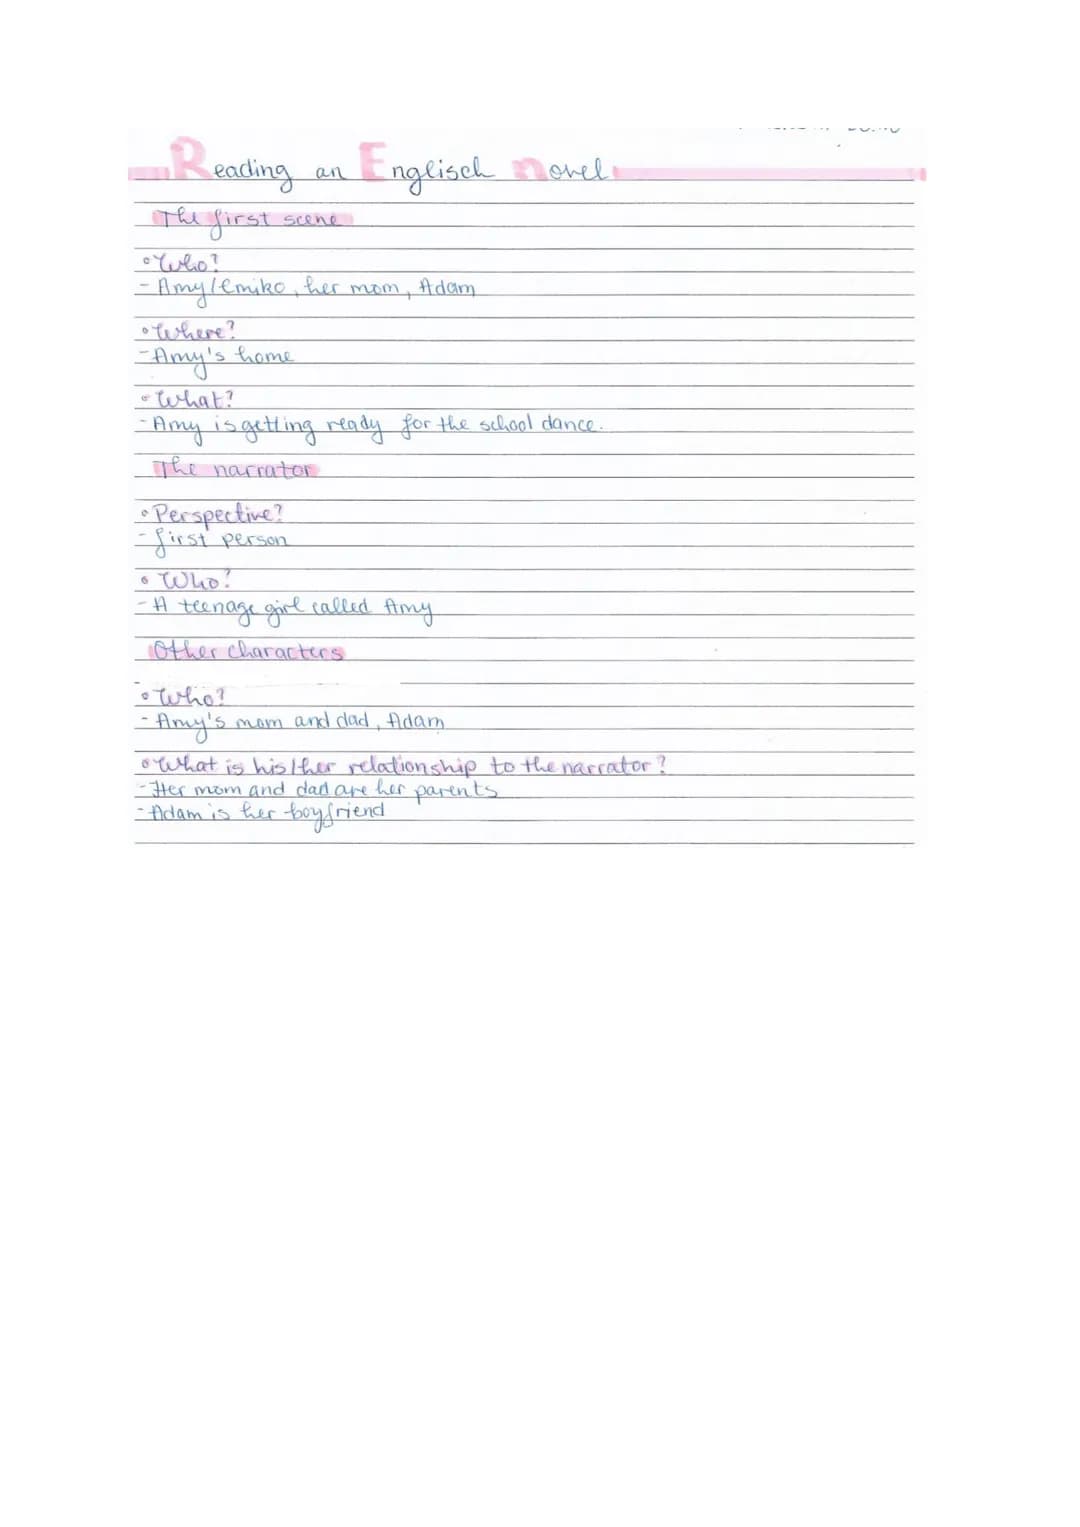 Reading an Englisch novel
The first scene
• Who?
- Amy/Emiko, her mom, Adam
• Where?
- Amy's home
• What?
- Amy is getting ready for the school dance.
The narrator
• Perspective?
- first person
• Who?
- A teenage girl called Amy
Other characters
• Who?
- Amy's mom and dad, Adam
• What is his/her relationship to the narrator?
- Her mom and dad are her parents
- Adam is her boyfriend